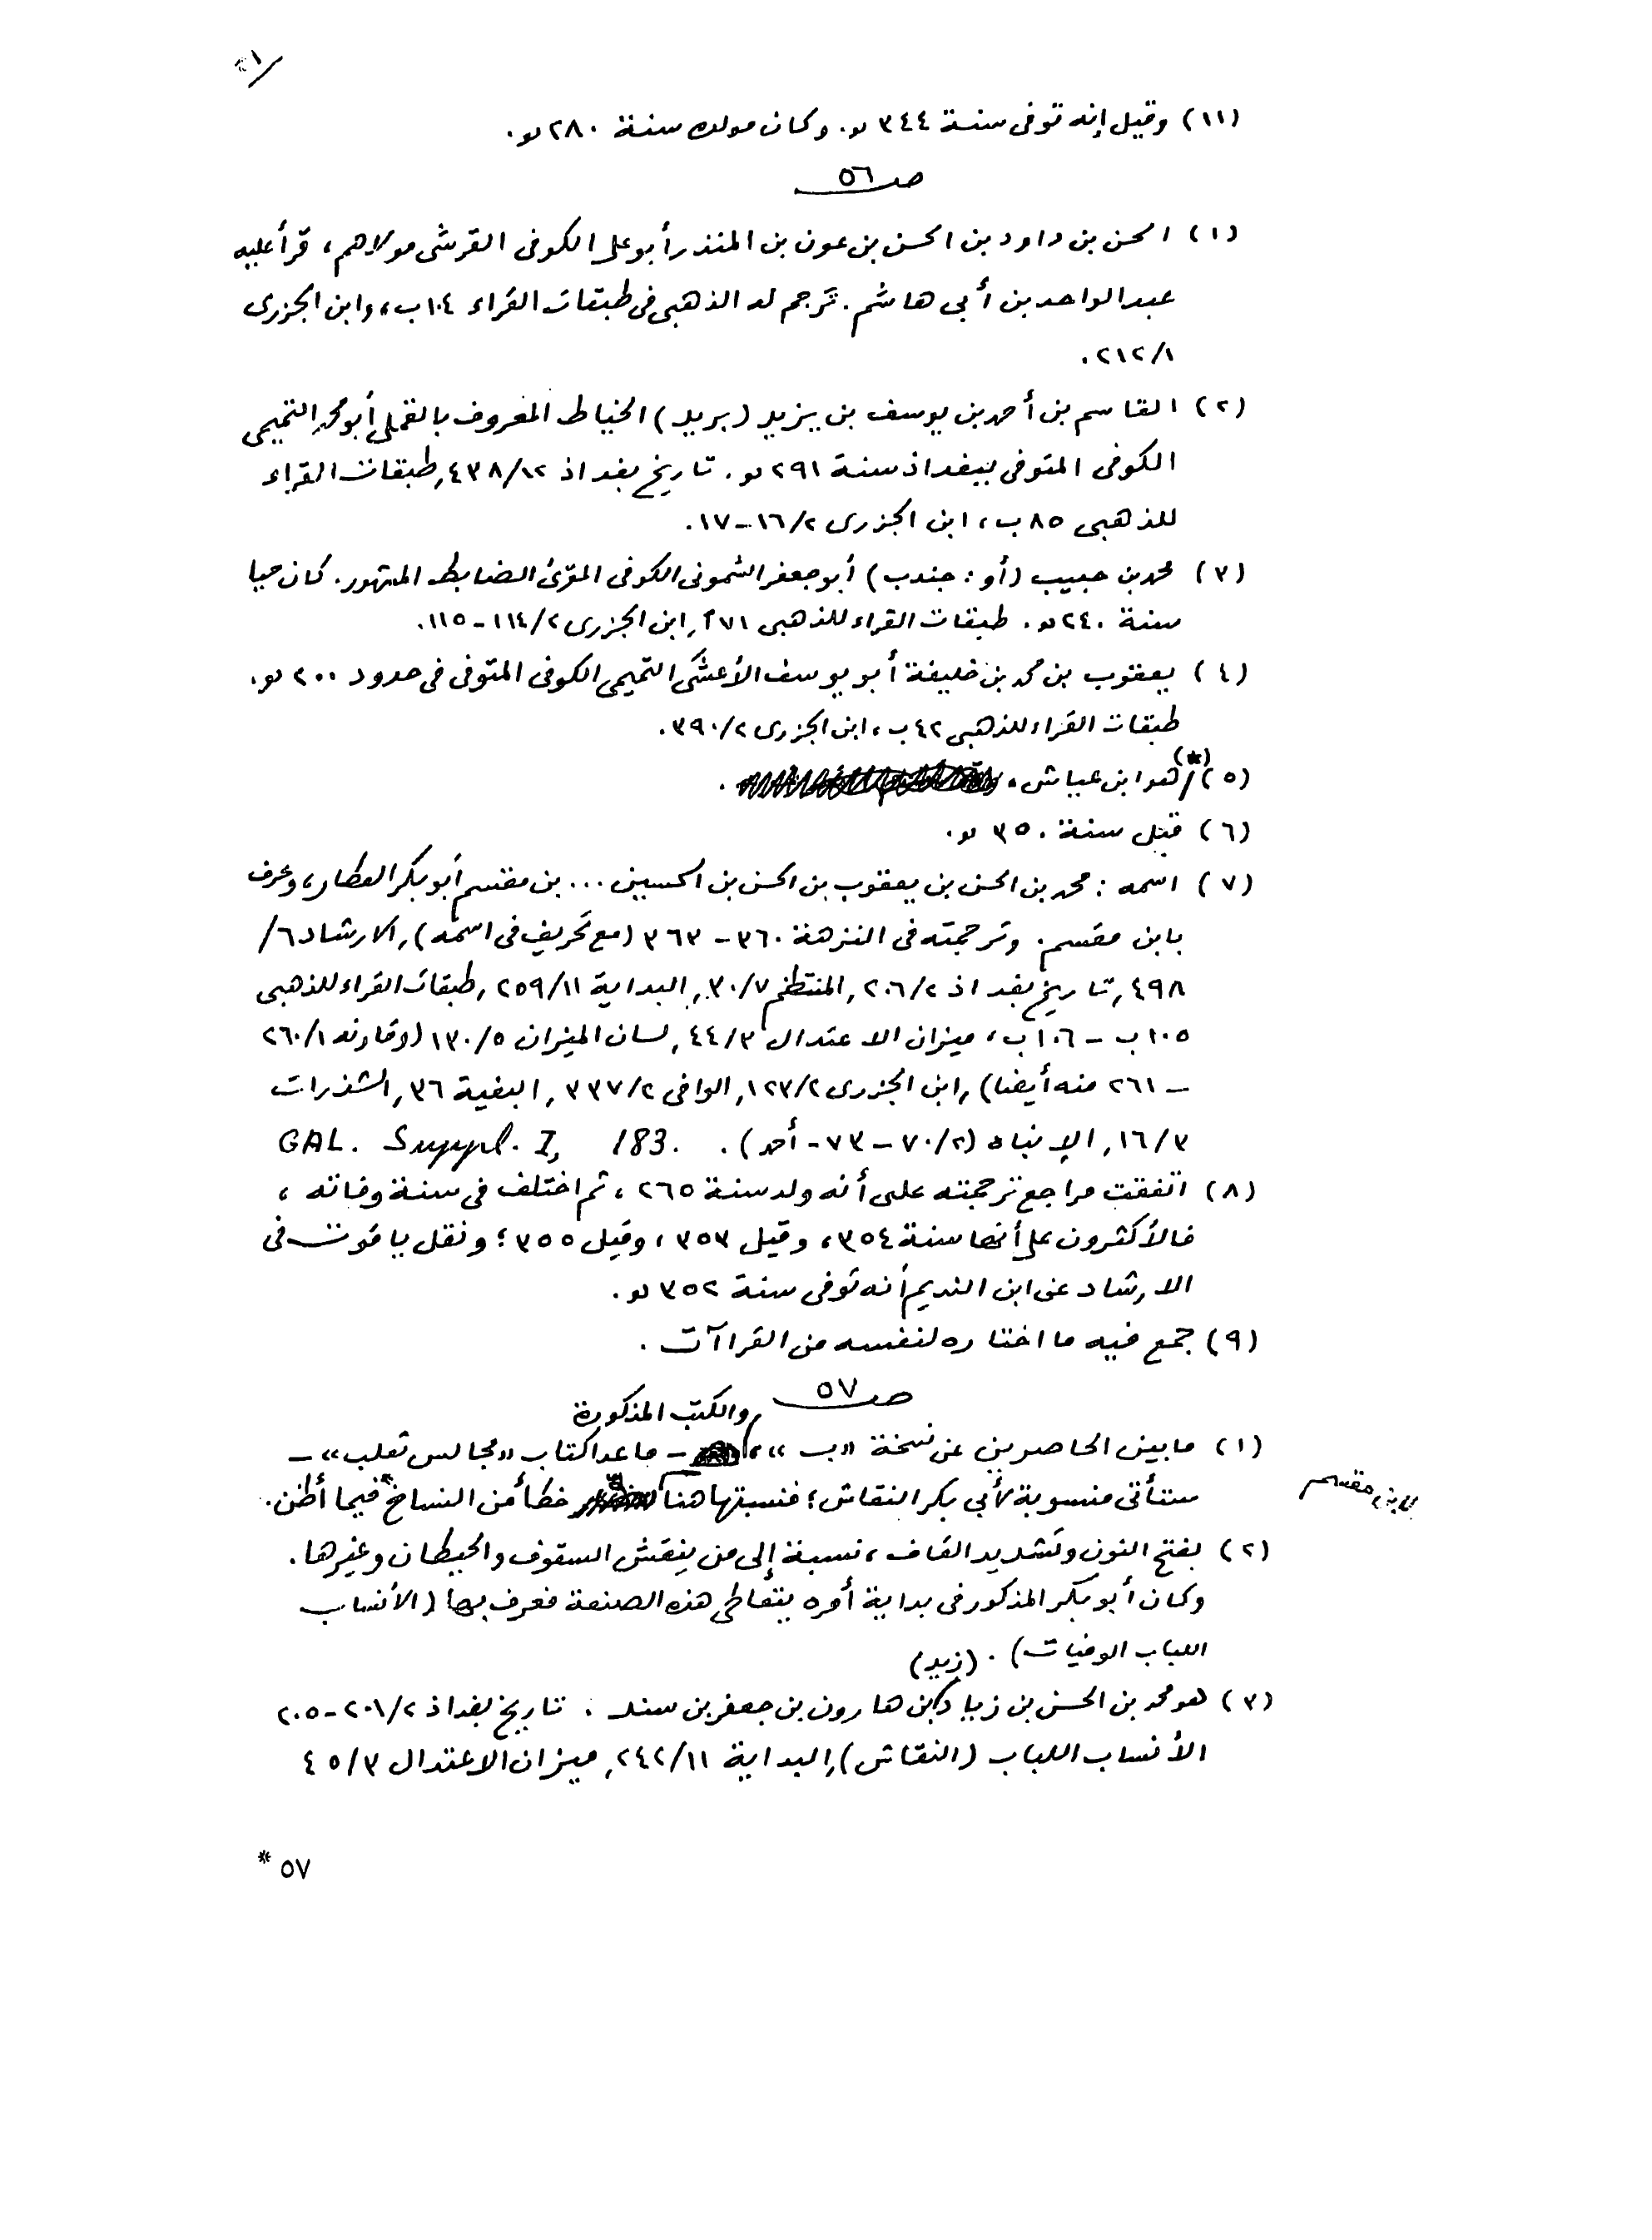 (١١) وقيل إنه توفى سنة ٣٤٤ هـ. وكان مولده سنة ٢٨٠ هـ.
صـ ٥٦
(١) الحسن بن داود بن الحسن بن عون بن المنذر أبو على الكوفى القرشى مولاهم، قرأ عليه
عبد الواحد بن أبى هاشم. ترجم له الذهبى فى طبقات القراء ١٠٤ ب، وابن الجزرى
٢١٢/١.
(٢) القاسم بن أحمد بن يوسف بن يزيد (بريد) الخياط المعروف بالقملى أبو محمد التميمى
الكوفى المتوفى ببغداذ سنة ٢٩١ هـ. تاريخ بغداذ ٤٣٨/١٢, طبقات القراء
للذهبى ٨٥ ب، ابن الجزرى ١٦/٢-١٧.
(٣) محمد بن حبيب (أو: جندب) أبو جعفر الشمونى الكوفى المقرئ الضابط المشهور. كان حيا
سنة ٢٤٠ هـ. طبقات القراء للذهبى ٧١ أ, ابن الجزرى ١١٤/٢-١١٥.
(٤) يعقوب بن محمد بن خليفة أبو يوسف الأعشى التميمى الكوفى المتوفى فى حدود ٢٠٠ هـ.
طبقات القراء للذهبى ٤٢ ب، ابن الجزرى ٣٩٠/٢.
(٥) (*) هو ابن عياش.
(٦) قبل سنة ٣٥٠ هـ.
(٧) اسمه: محمد بن الحسن بن يعقوب بن الحسن بن الحسين ... بن مقسم أبو بكر العطار، وعرف
بابن مقسم. وترجمته فى النزهة ٣٦٠-٣٦٣ (مع تحريف فى اسمه), الارشاد ٦/
٤٩٨, تاريخ بغداذ ٢٠٦/٢, المنتظم ٣٠/٧, البداية ٢٥٩/١١, طبقات القراء للذهبى
١٠٥ ب - ١٠٦ ب، ميزان الاعتدال ٤٤/٣, لسان الميزان ١٣٠/٥ (وقارنه ٢٦٠/١
- ٢٦١ منه أيضا), ابن الجزرى ١٢٣/٢, الوافى ٣٣٧/٢, البغية ٣٦, الشذرات
١٦/٣, الإنباه (٧٠/٢ - ٧٣ - أحمد). GAL. Suppl. I, 183.
(٨) اتفقت مراجع ترجمته على أنه ولد سنة ٢٦٥، ثم اختلف فى سنة وفاته،
فالأكثرون على أنها سنة ٣٥٤، وقيل ٣٥٣، وقيل ٣٥٥؛ ونقل ياقوت فى
الارشاد عن ابن النديم أنه توفى سنة ٣٥٢ هـ.
(٩) جمع فيه ما اختاره لنفسه من القراآت.
صـ ٥٧
والكتب المذكورة
(١) ما بين الحاصرين عن نسخة «ب»، - ما عدا كتاب «مجالس ثعلب» -
ستأتى منسوبة لأبى بكر النقاش؛ فنسبتها هنا خطأ من النساخ فيما أظن.
لابن مقسم
(٢) بفتح النون وتشديد القاف، نسبة إلى من ينقش السقوف والحيطان وغيرها.
وكان أبو بكر المذكور فى بداية أمره يتعاطى هذه الصنعة فعرف بها (الأنساب
اللباب الوفيات).
(زيد)
(٣) هو محمد بن الحسن بن زياد بن هارون بن جعفر بن سند. تاريخ بغداذ ٢٠١/٢-٢٠٥
الأنساب اللباب (النقاش), البداية ٢٤٢/١١, ميزان الاعتدال ٤٥/٣
* ٥٧